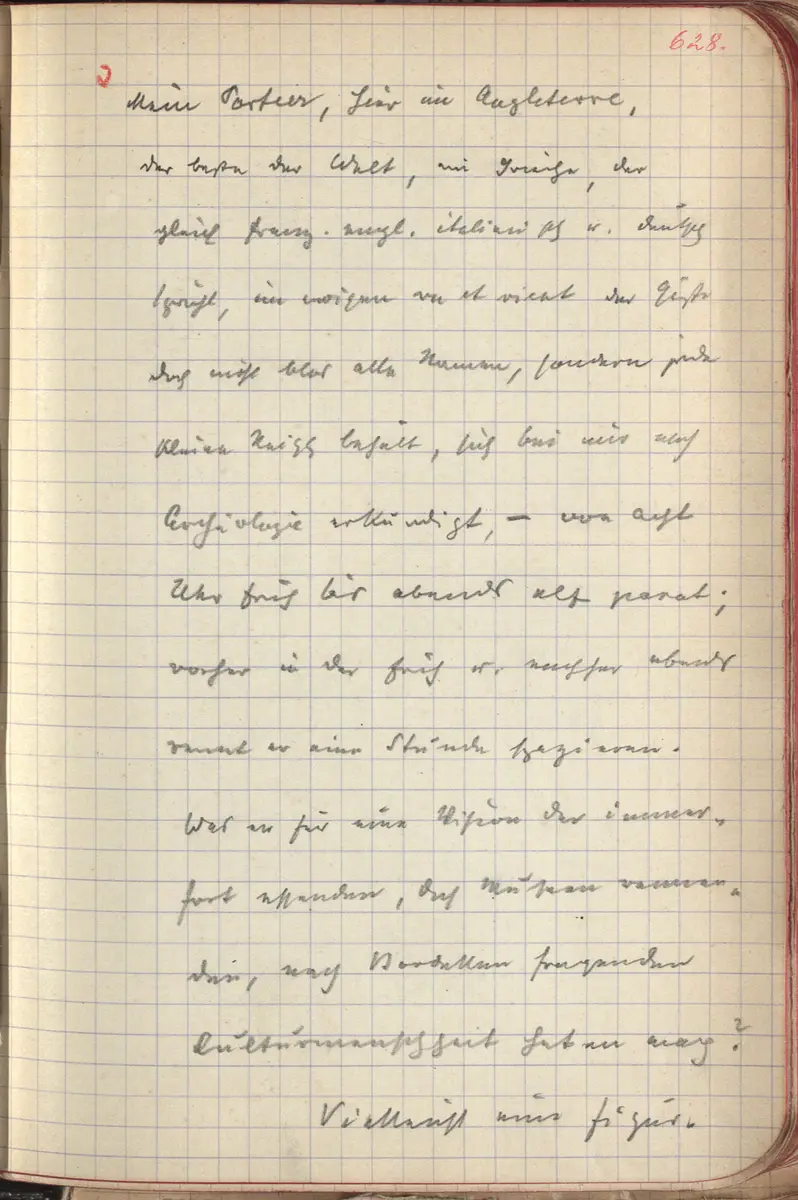 628.
Mein Portier, hier im Angleterre,
der beste der Welt, ein Grieche, der
gleich franz. engl. italienisch u. deutsch
spricht, im ewigen va et vient der Gäste
doch nicht blos alle Namen, sondern jede
kleine behält, sich bei mir nach
Archäologie erkundigt, – von acht
Uhr früh bis abends elf parat;
vorher in der Früh u. nachher abends
rennt er eine Stunde spazieren.
Was er für eine Vision der immer-
fort essenden, durch Museen rennen-
den, nach Bordellen fragenden
Kulturmenschheit haben mag?
Vielleicht eine Figur.